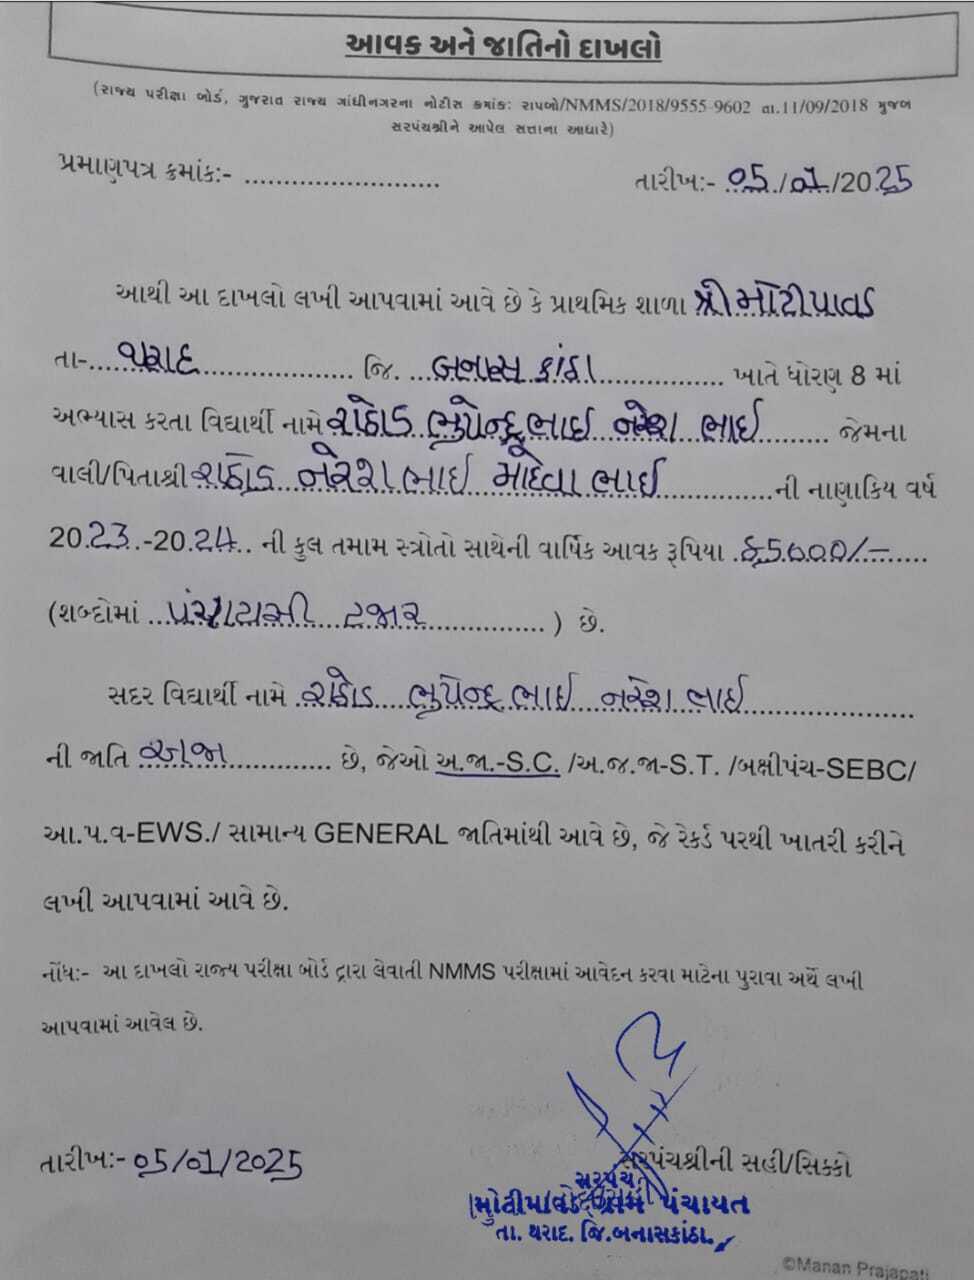 આવક અને જાતિનો દાખલો
(રાજ્ય પરીક્ષા બોર્ડ, ગુજરાત રાજ્ય ગાંધીનગરના નોટીસ ક્રમાંક: રાપબો/NMMS/2018/9555-9602 તા.11/09/2018 મુજબ
સરપંચશ્રીને આપેલ સત્તાના આધારે)
પ્રમાણપત્ર ક્રમાંક:- ........................... તારીખ:- 05/01/2025
આથી આ દાખલો લખી આપવામાં આવે છે કે પ્રાથમિક શાળા શ્રી મોટીપાવડ
તા-...થરાદ................ જિ. ...બનાસ કાંઠા............... ખાતે ધોરણ 8 માં
અભ્યાસ કરતા વિદ્યાર્થી નામે રાઠોડ ભુપેન્દ્રભાઈ નરેશભાઈ ........ જેમના
વાલી/પિતાશ્રી રાઠોડ નરેશભાઈ માદેવાભાઈ ............ ની નાણાકિય વર્ષ
2023-2024 ની કુલ તમામ સ્ત્રોતો સાથેની વાર્ષિક આવક રૂપિયા 85000/-
(શબ્દોમાં ...પંચાયાસી હજાર.............. ) છે.
સદર વિદ્યાર્થી નામે રાઠોડ ભુપેન્દ્રભાઈ નરેશભાઈ ...................
ની જાતિ અજા.............. છે, જેઓ અ.જા.-S.C. /અ.જ.જા-S.T. /બક્ષીપંચ-SEBC/
આ.પ.વ-EWS./ સામાન્ય GENERAL જાતિમાંથી આવે છે, જે રેકર્ડ પરથી ખાતરી કરીને
લખી આપવામાં આવે છે.
નોંધ:- આ દાખલો રાજ્ય પરીક્ષા બોર્ડ દ્રારા લેવાતી NMMS પરીક્ષામાં આવેદન કરવા માટેના પુરાવા અર્થે લખી
આપવામાં આવેલ છે.
તારીખ:- 05/01/2025 સરપંચશ્રીની સહી/સિક્કો
સરપંચ
ગ્રામ પંચાયત
તા. થરાદ. જિ.બનાસકાંઠા.
©Manan Prajapati